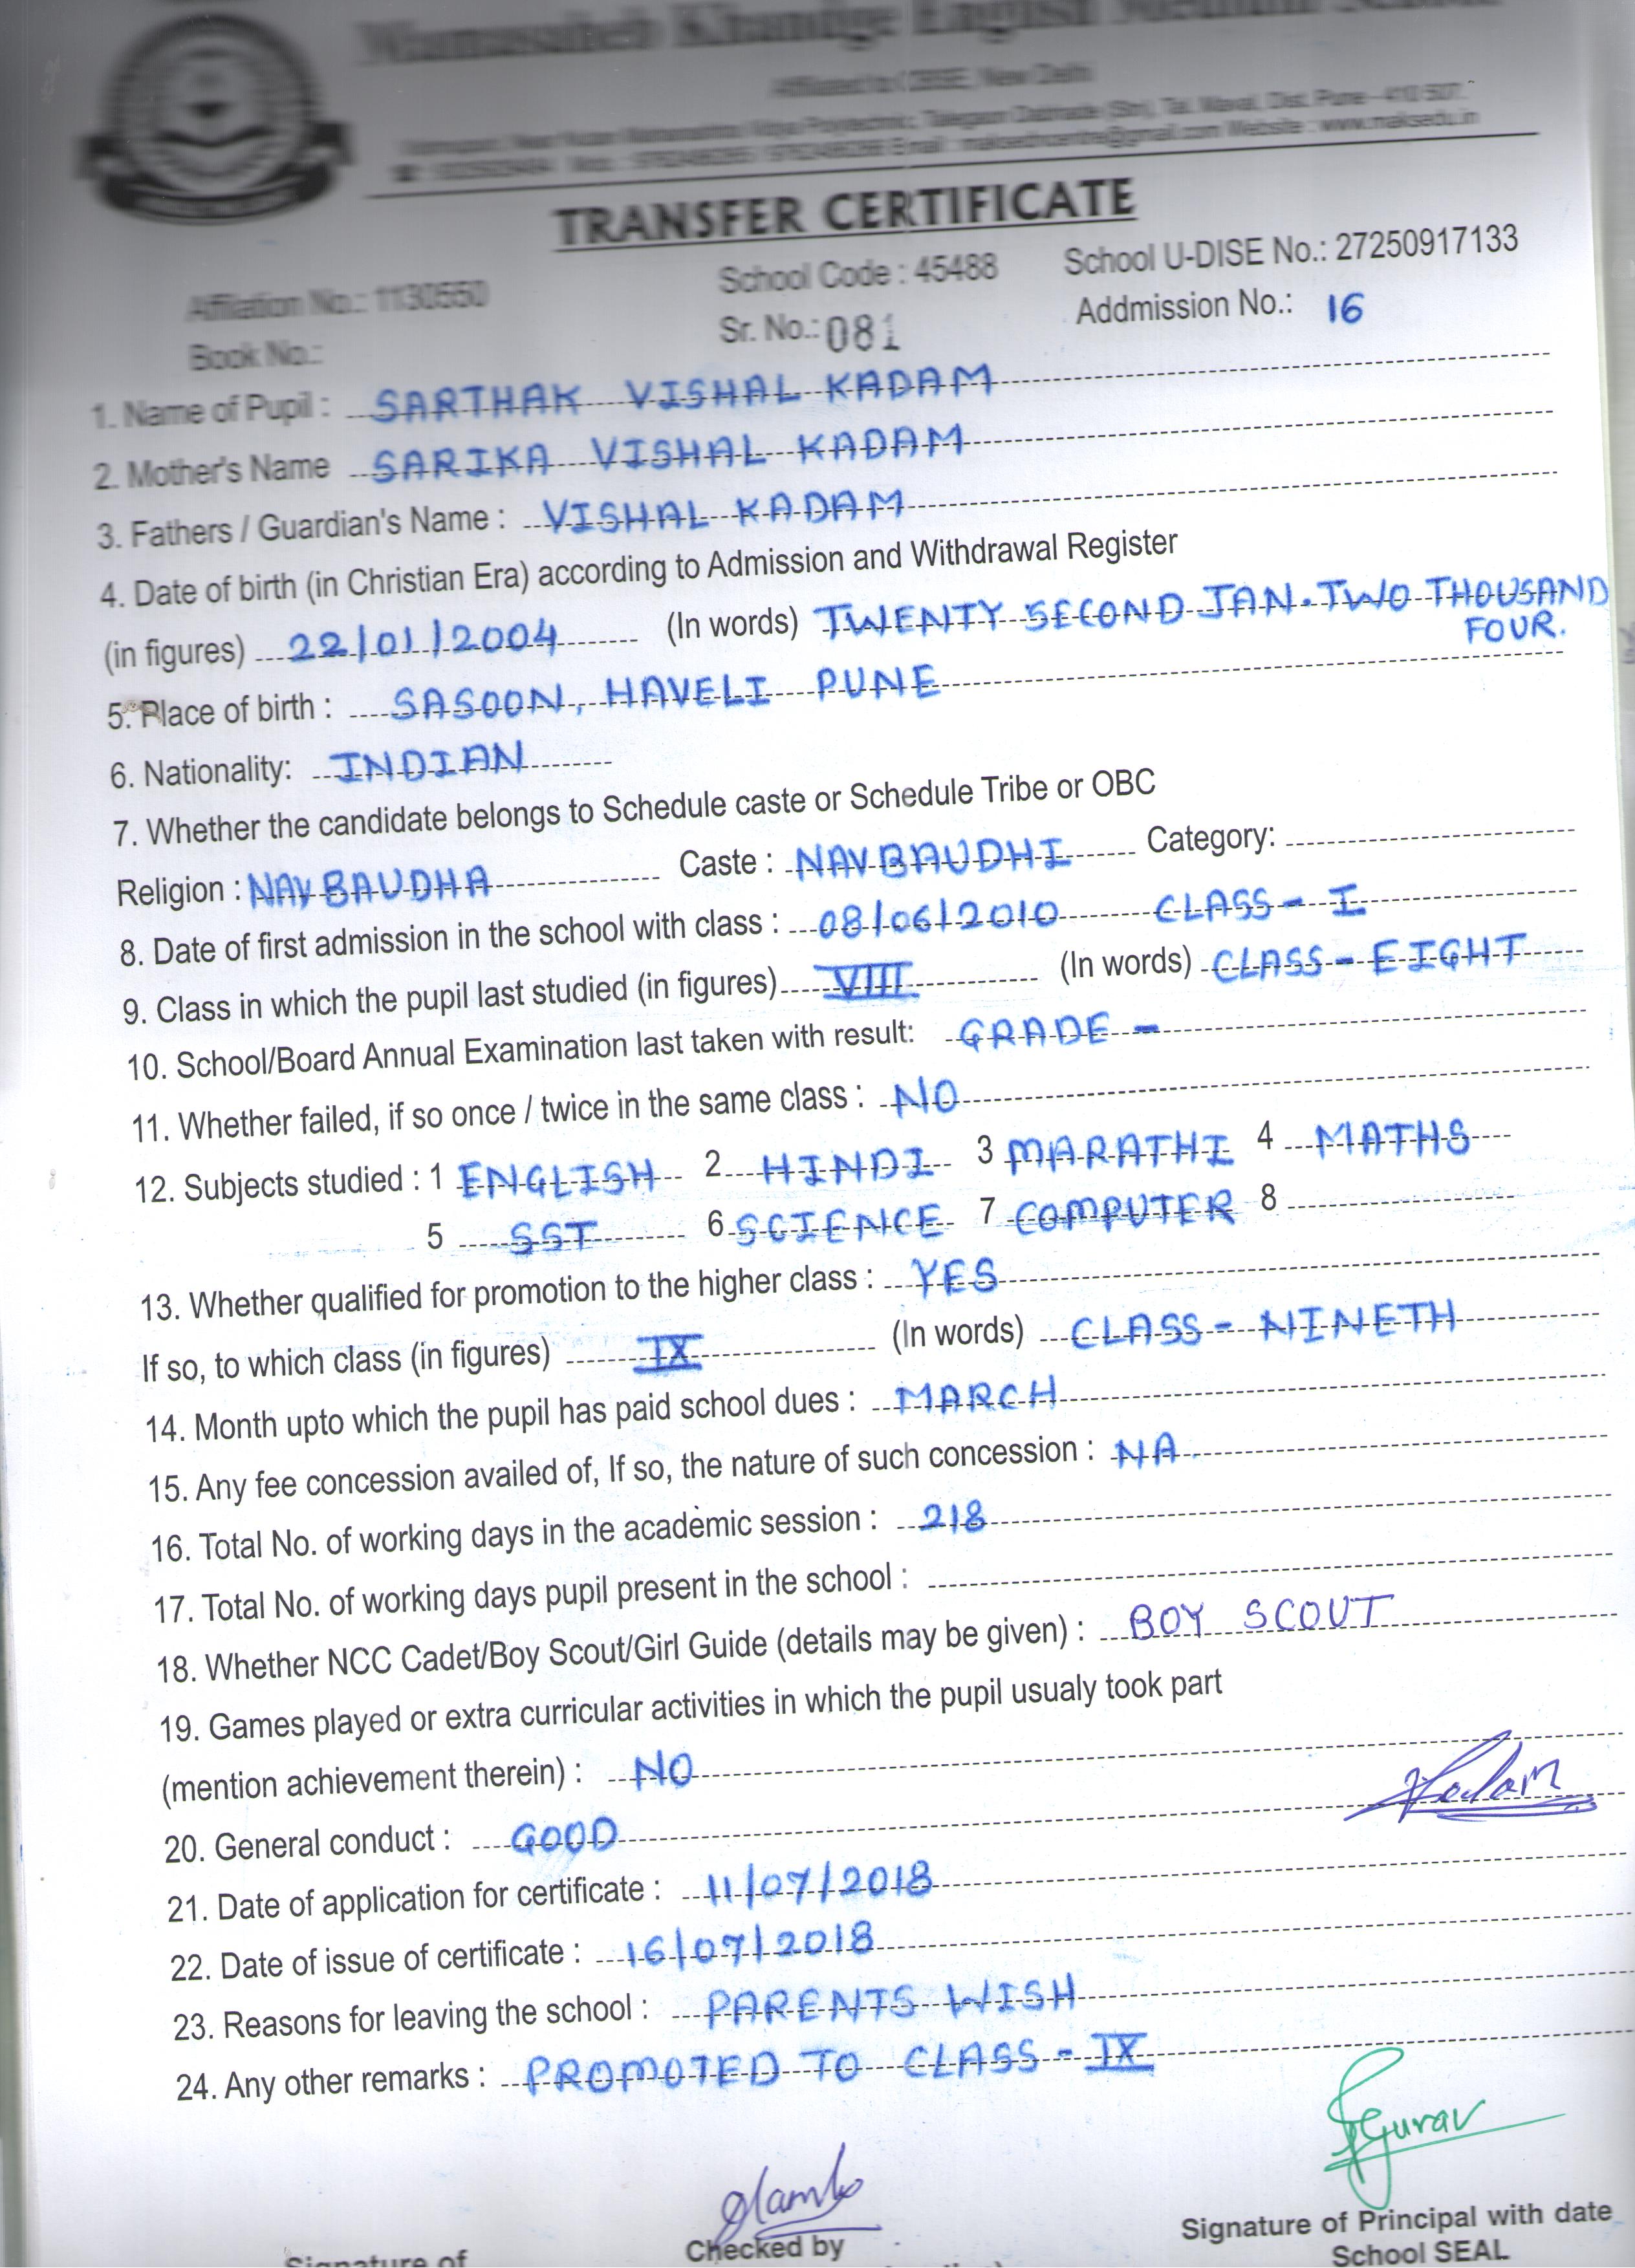 Khandge English Medium
Affiliated to CBSE, New Delhi
Polytechnic, Talegaon Dabhade (Stn), Tal. Maval, Dist. Pune - 410 507.
Website : www.maksedu.in
TRANSFER CERTIFICATE
Affiliation No.: 1130550 School Code : 45488 School U-DISE No.: 27250917133
Book No.: Sr. No.: 081 Addmission No.: 16
1. Name of Pupil : SARTHAK VISHAL KADAM
2. Mother's Name SARIKA VISHAL KADAM
3. Fathers / Guardian's Name : VISHAL KADAM
4. Date of birth (in Christian Era) according to Admission and Withdrawal Register
(in figures) 22/01/2004 (In words) TWENTY SECOND JAN. TWO THOUSAND
FOUR.
5. Place of birth : SASOON, HAVELI PUNE
6. Nationality: INDIAN
7. Whether the candidate belongs to Schedule caste or Schedule Tribe or OBC
Religion : NAV BAUDHA Caste : NAVBAUDHI Category:
8. Date of first admission in the school with class : 08/06/2010 CLASS - I
9. Class in which the pupil last studied (in figures) VIII (In words) CLASS - EIGHT
10. School/Board Annual Examination last taken with result: GRADE -
11. Whether failed, if so once / twice in the same class : NO
12. Subjects studied : 1 ENGLISH 2 HINDI 3 MARATHI 4 MATHS
5 SST 6 SCIENCE 7 COMPUTER 8
13. Whether qualified for promotion to the higher class : YES
If so, to which class (in figures) IX (In words) CLASS - NINETH
14. Month upto which the pupil has paid school dues : MARCH
15. Any fee concession availed of, If so, the nature of such concession : NA
16. Total No. of working days in the academic session : 218
17. Total No. of working days pupil present in the school :
18. Whether NCC Cadet/Boy Scout/Girl Guide (details may be given) : BOY SCOUT
19. Games played or extra curricular activities in which the pupil usualy took part
(mention achievement therein) : NO
Kadam
20. General conduct : GOOD
21. Date of application for certificate : 11/07/2018
22. Date of issue of certificate : 16/07/2018
23. Reasons for leaving the school : PARENTS WISH
24. Any other remarks : PROMOTED TO CLASS - IX
Gurav
Signature of Checked by Signature of Principal with date
School SEAL